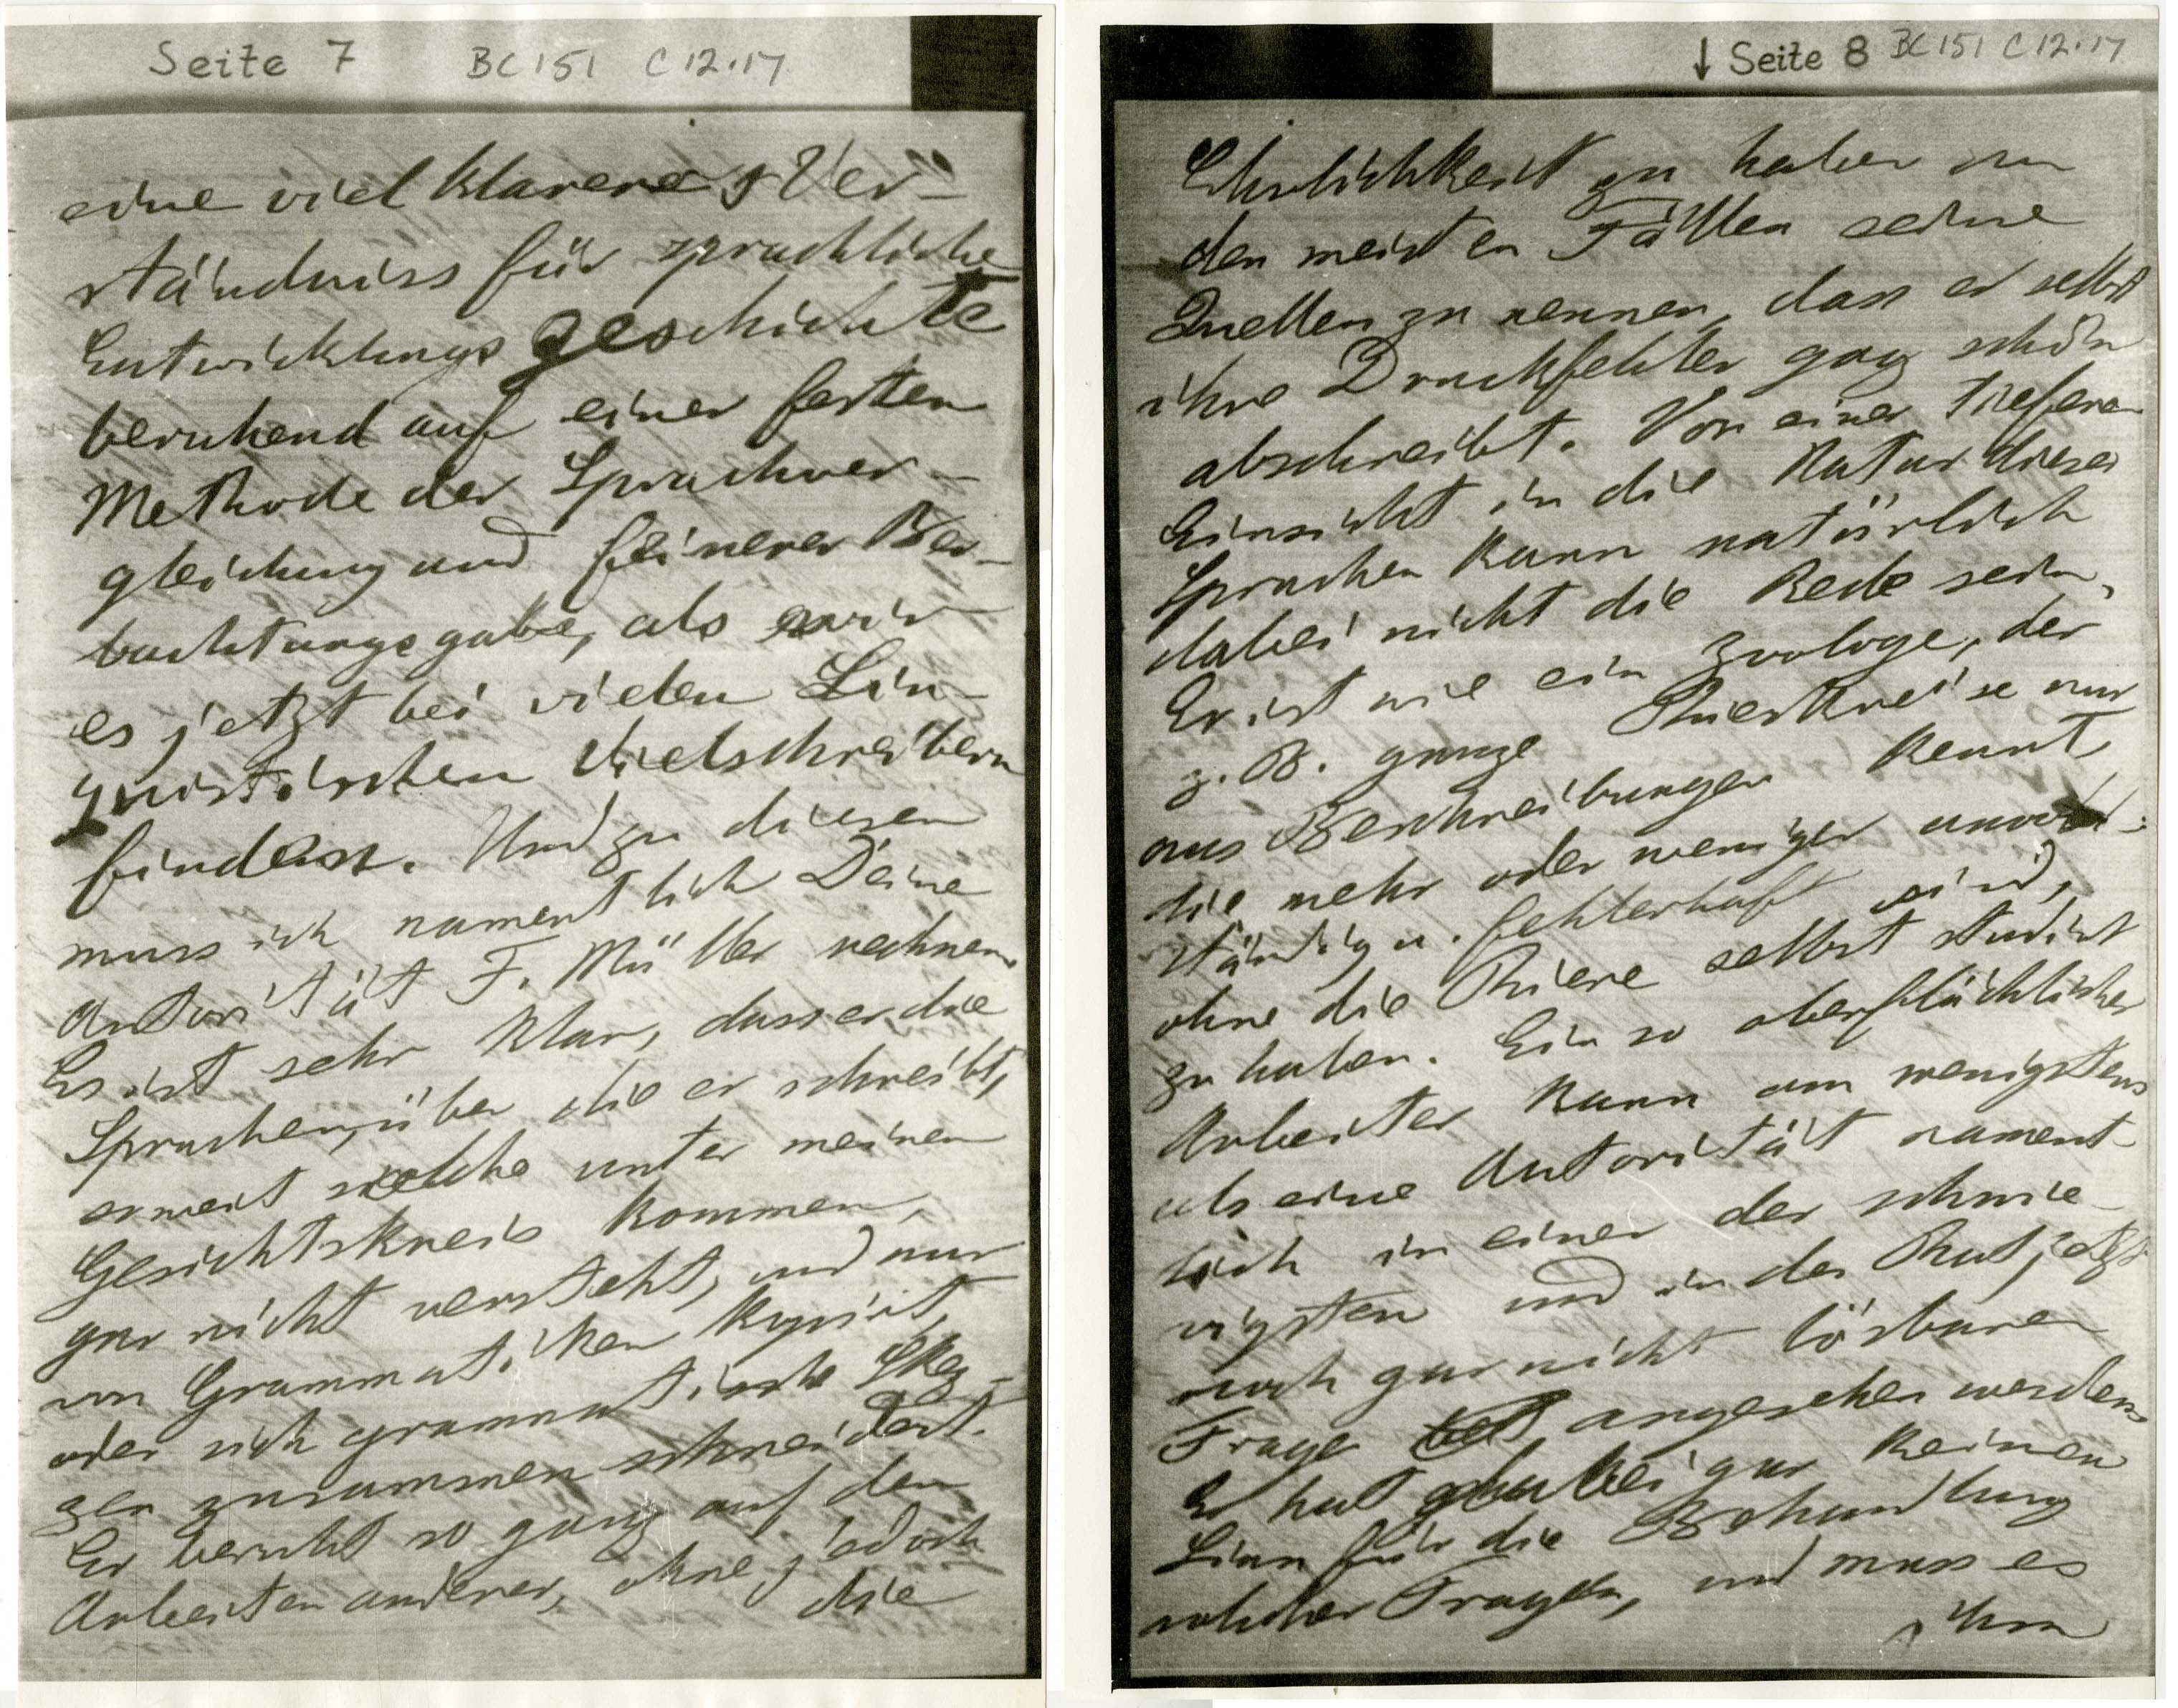 Seite 7 BC151 C12.17
eine viel klareres Ver-
ständniss für sprachliche
Entwicklungsgeschichte
beruhend auf einer festen
Methode der Sprachver-
gleichung und feinerer Beo-
bachtungsgabe, als wir
es jetzt bei vielen Lin-
guistischen Vielschreibern
finden. Und zu diesen
muss ich namentlich Deine
Autorität F. Müller rechnen.
Es ist sehr klar, dass er die
Sprachen, über die er schreibt,
soweit solche unter meinen
Gesichtskreis kommen,
gar nicht versteht, und nur
von Grammatiken kopirt,
oder sich grammatische Skiz-
zen zusammen schneidert.
Er beruht so ganz auf den
Arbeiten anderer, ohne jedoch
die
↓ Seite 8 BC151 C12.17
Ehrlichkeit zu haben in
den meisten Fällen seine
Quellen zu nennen, dass er selbst
ihre Druckfehler ganz schön
abschreibt. Von einer tieferen
Einsicht in die Natur dieser
Sprachen kann natürlich
dabei nicht die Rede sein.
Er ist wie ein Zoologe, der
z. B. ganze Thierkreise nur
aus Beschreibungen kennt,
die mehr oder weniger unvoll-
ständig u. fehlerhaft sind,
ohne die Thiere selbst studirt
zu haben. Ein so oberflächlicher
Arbeiter kann am wenigstens
als eine Autorität nament-
lich in einer der schwie-
rigsten und in der That jetzt
noch gar nicht lösbaren
Frage angesehen werden.
Er hat dabei gar keinen
Sinn für die Behandlung
solcher Fragen, und muss es
ihm